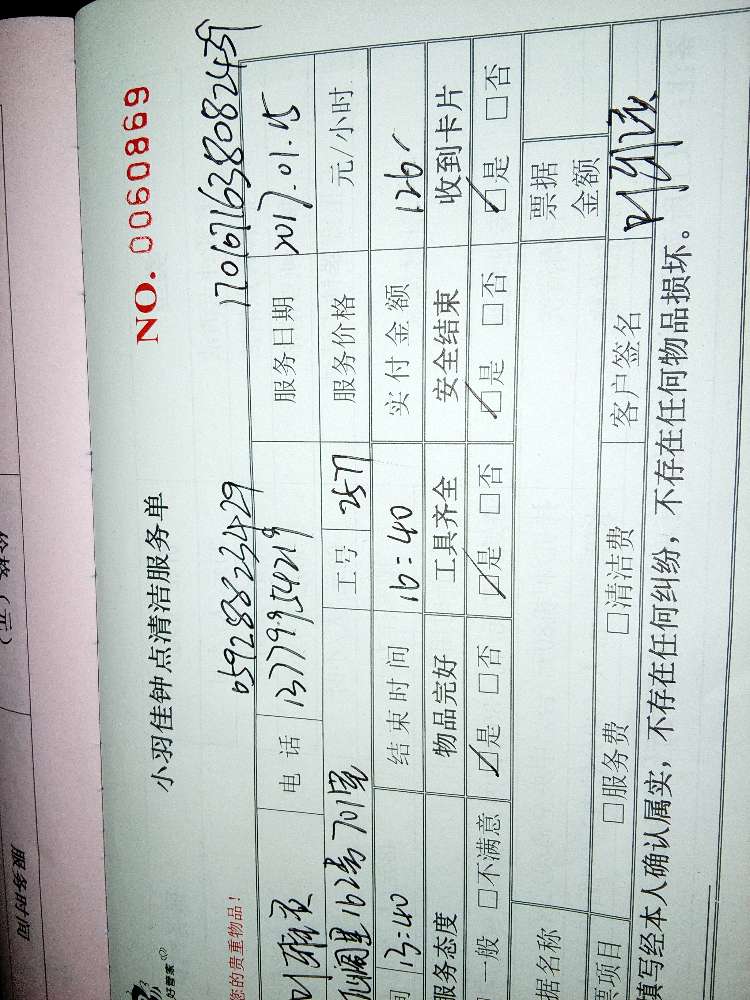 NO. 0060869
小羽佳钟点清洁服务单
好管家
您的贵重物品!
05928823429
电话 13779954219
服务日期 2017.01.15
162号701室
工号 2577
服务价格 元/小时
间 13:40 结束时间 16:40 实付金额 126
服务态度 物品完好 工具齐全 安全结束 收到卡片
一般 □不满意 ☑是 □否 ☑是 □否 ☑是 □否 ☑是 □否
据名称 票据金额
票项目 □服务费 □清洁费 客户签名
填写经本人确认属实,不存在任何纠纷,不存在任何物品损坏。
服务时间
价格(元)